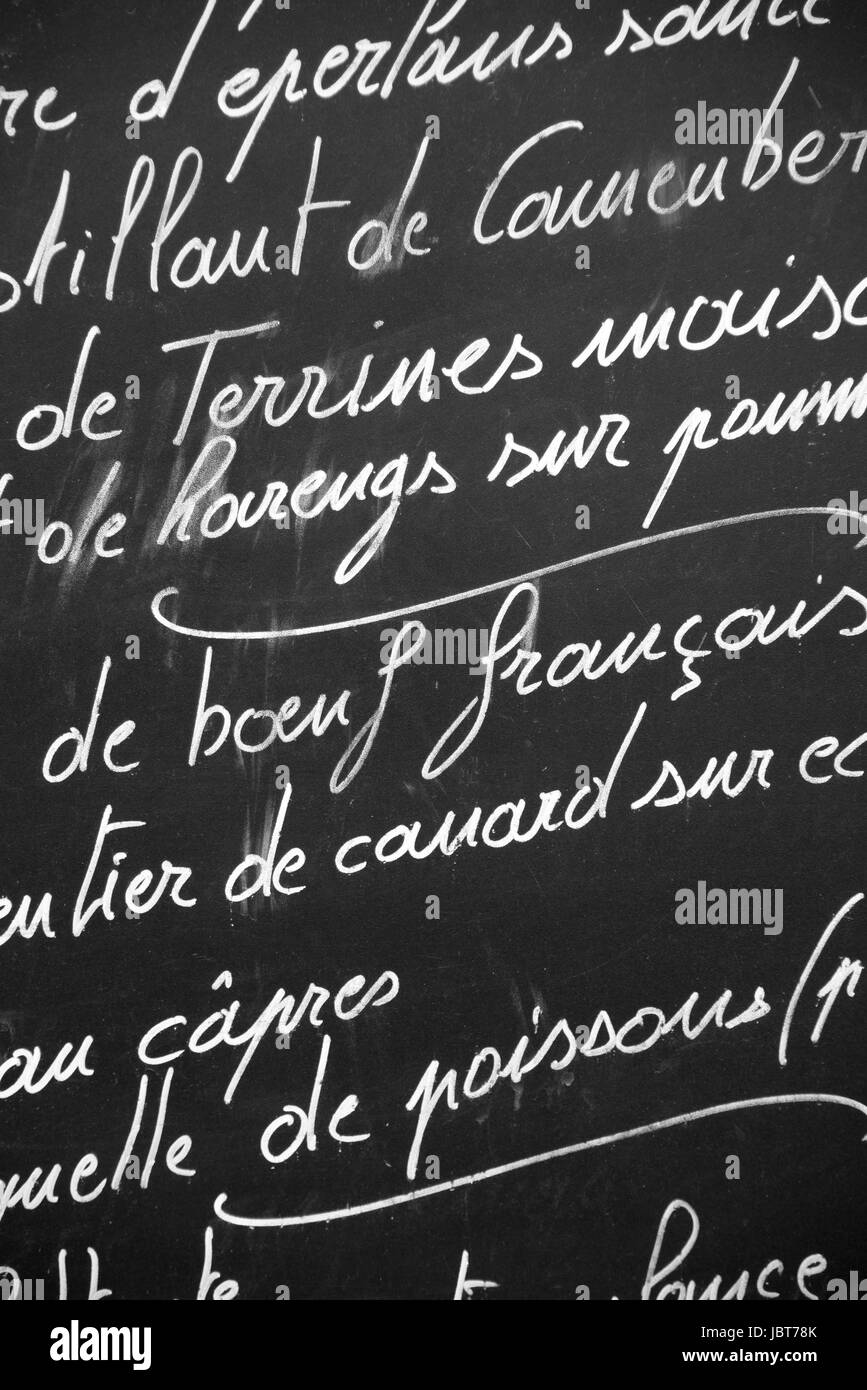 re d'éperlans sauce
stillant de Camember
de Terrines maiso
t de harengs sur pomm
de bœuf français
entier de canard sur ec
au câpres
quelle de poissons (p
glace
alamy
Image ID: JBT78K
www.alamy.com